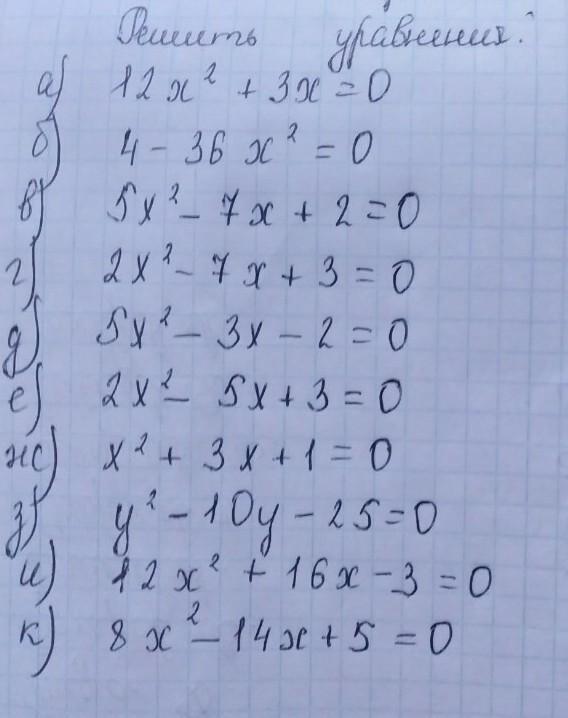 Решить уравнения:
а) 12x² + 3x = 0
б) 4 - 36x² = 0
в) 5x² - 7x + 2 = 0
г) 2x² - 7x + 3 = 0
д) 5x² - 3x - 2 = 0
е) 2x² - 5x + 3 = 0
ж) x² + 3x + 1 = 0
з) y² - 10y - 25 = 0
и) 12x² + 16x - 3 = 0
к) 8x² - 14x + 5 = 0